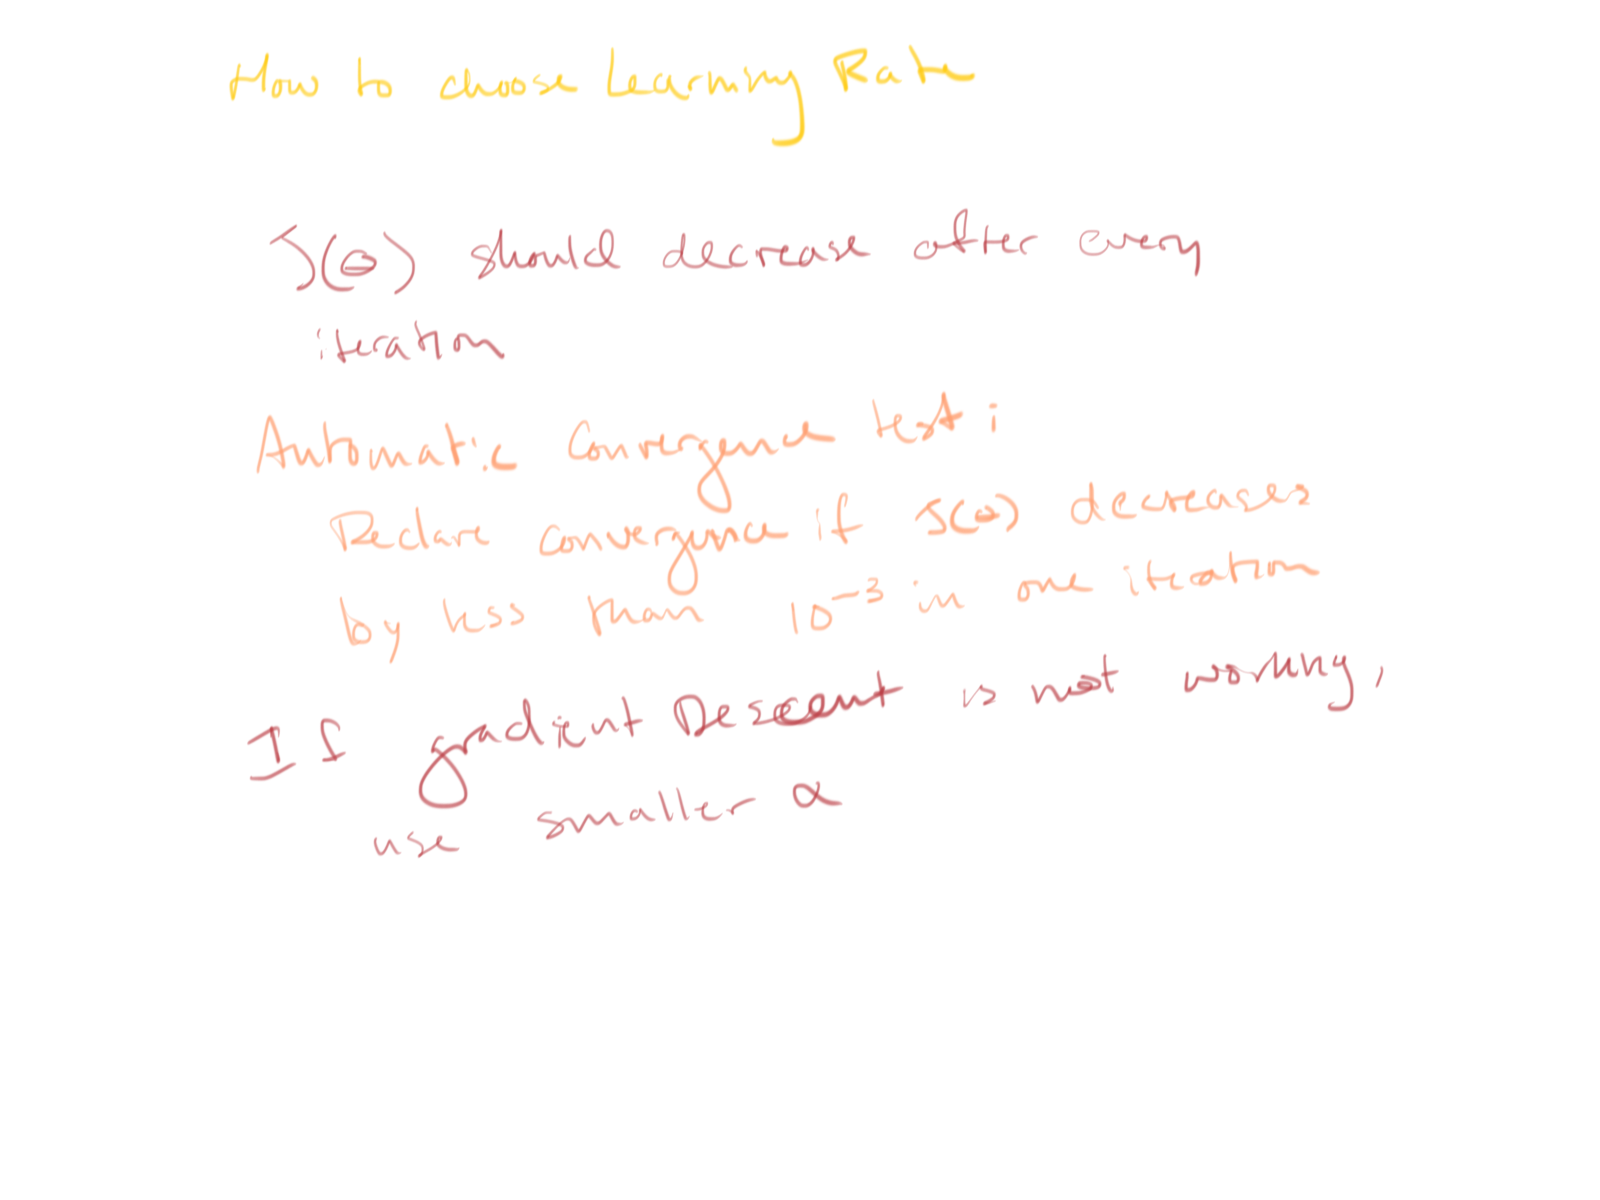 How to choose Learning Rate
J(θ) should decrease after every
iteration
Automatic Convergence test :
Declare convergence if J(θ) decreases
by less than 10⁻³ in one iteration
If gradient Descent is not working,
use smaller α